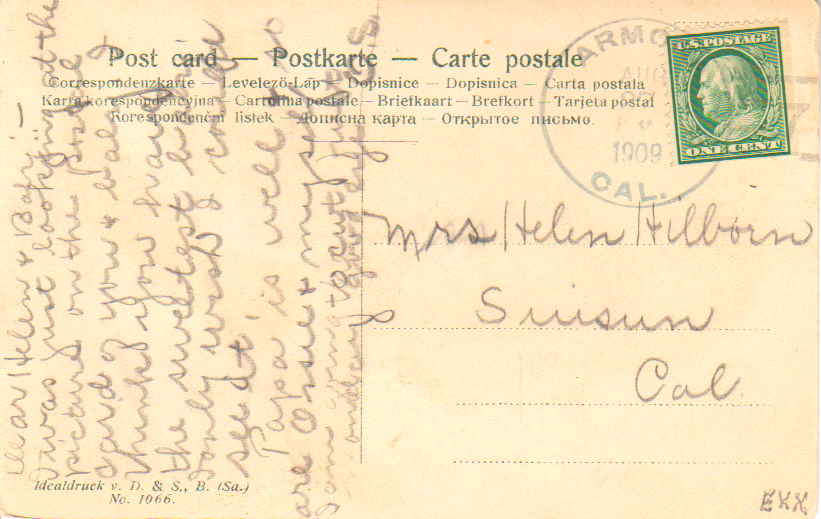 Post card — Postkarte — Carte postale
Correspondenzkarte — Levelező-Láp — Dopisnice — Dopisnica — Carta postala
Karta korespondencyjna — Cartolina postale — Briefkaart — Brefkort — Tarjeta postal
Korespondenční listek — Дописна карта — Открытое письмо.
ARMO
AUG
1909
CAL.
U.S. POSTAGE
ONE CENT
Mrs Helen Hilborn
Suisun
Cal
Dear Helen & Baby —
I was just looking at the
picture on the postal
card of you & baby I
think you have
the sweetest baby
I only wish I could
see it
Papa is well & so
are Ossie & myself
Idealdruck v. D. & S., B. (Sa.)
No. 1066.
EKX